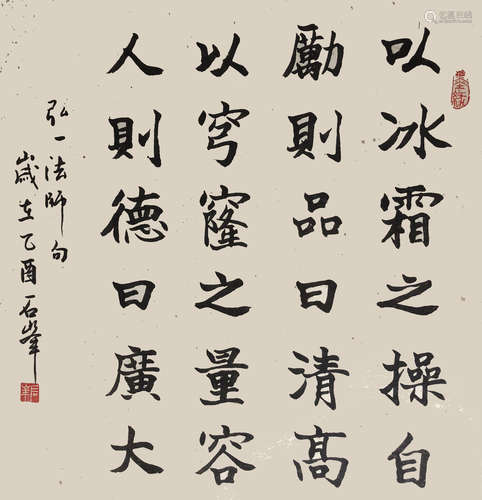 以冰霜之操自
勵則品日清高
以穹窿之量容
人則德日廣大
弘一法師句
歲在乙酉石峯